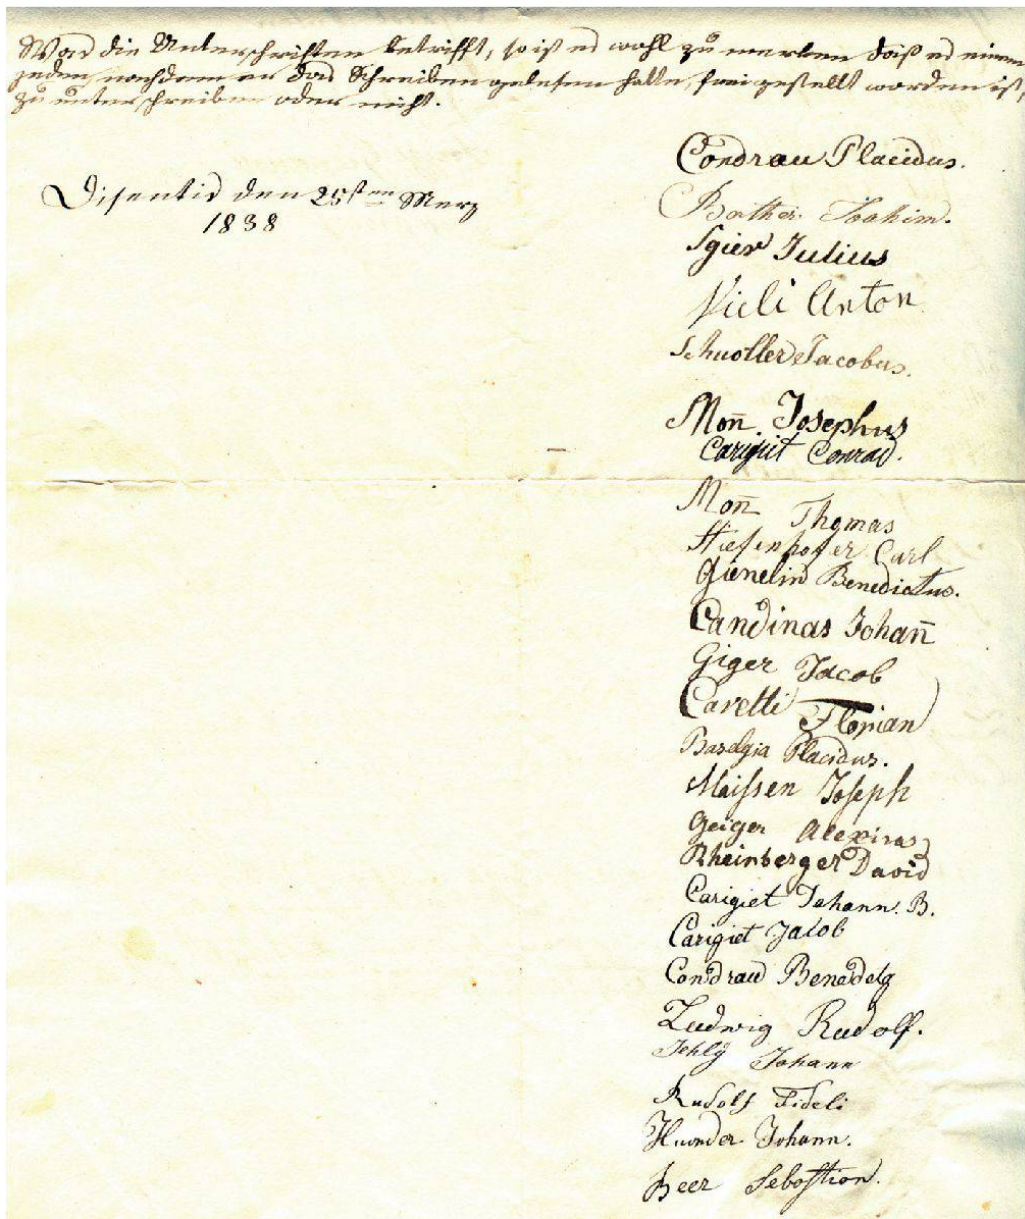 Was die Unterschriften betrifft, so ist es wohl zu merken daß es einem
jeden, nachdem er das Schreiben gelesen hatte, frei gestellt worden ist,
zu unterschreiben oder nicht.
Disentis den 25sten Merz
1838
Condrau Placidus.
Berther Joahim.
Sgier Julius
Vieli Anton
Schuoller Jacobus.
Mon̄ Josephus
Carigiet Conrad.
Mon̄ Thomas
Stiefenhofer Carl
Gienelin Benedictus.
Candinas Johan̄
Giger Jacob
Caretti Florian
Baselgia Placidus.
Maissen Joseph
Geiger
Rheinberger David
Carigiet Johann. B.
Carigiet Jacob
Condrau Benedetg
Ludwig Rudolf.
Jehly Johann
Rudolf Fideli
Huonder Johann.
Beer Sebastian.